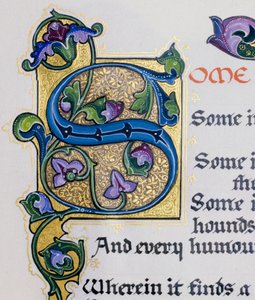 SOME
Some i
Some i
the
Some i
hounds
And every humou
Wherein it finds a